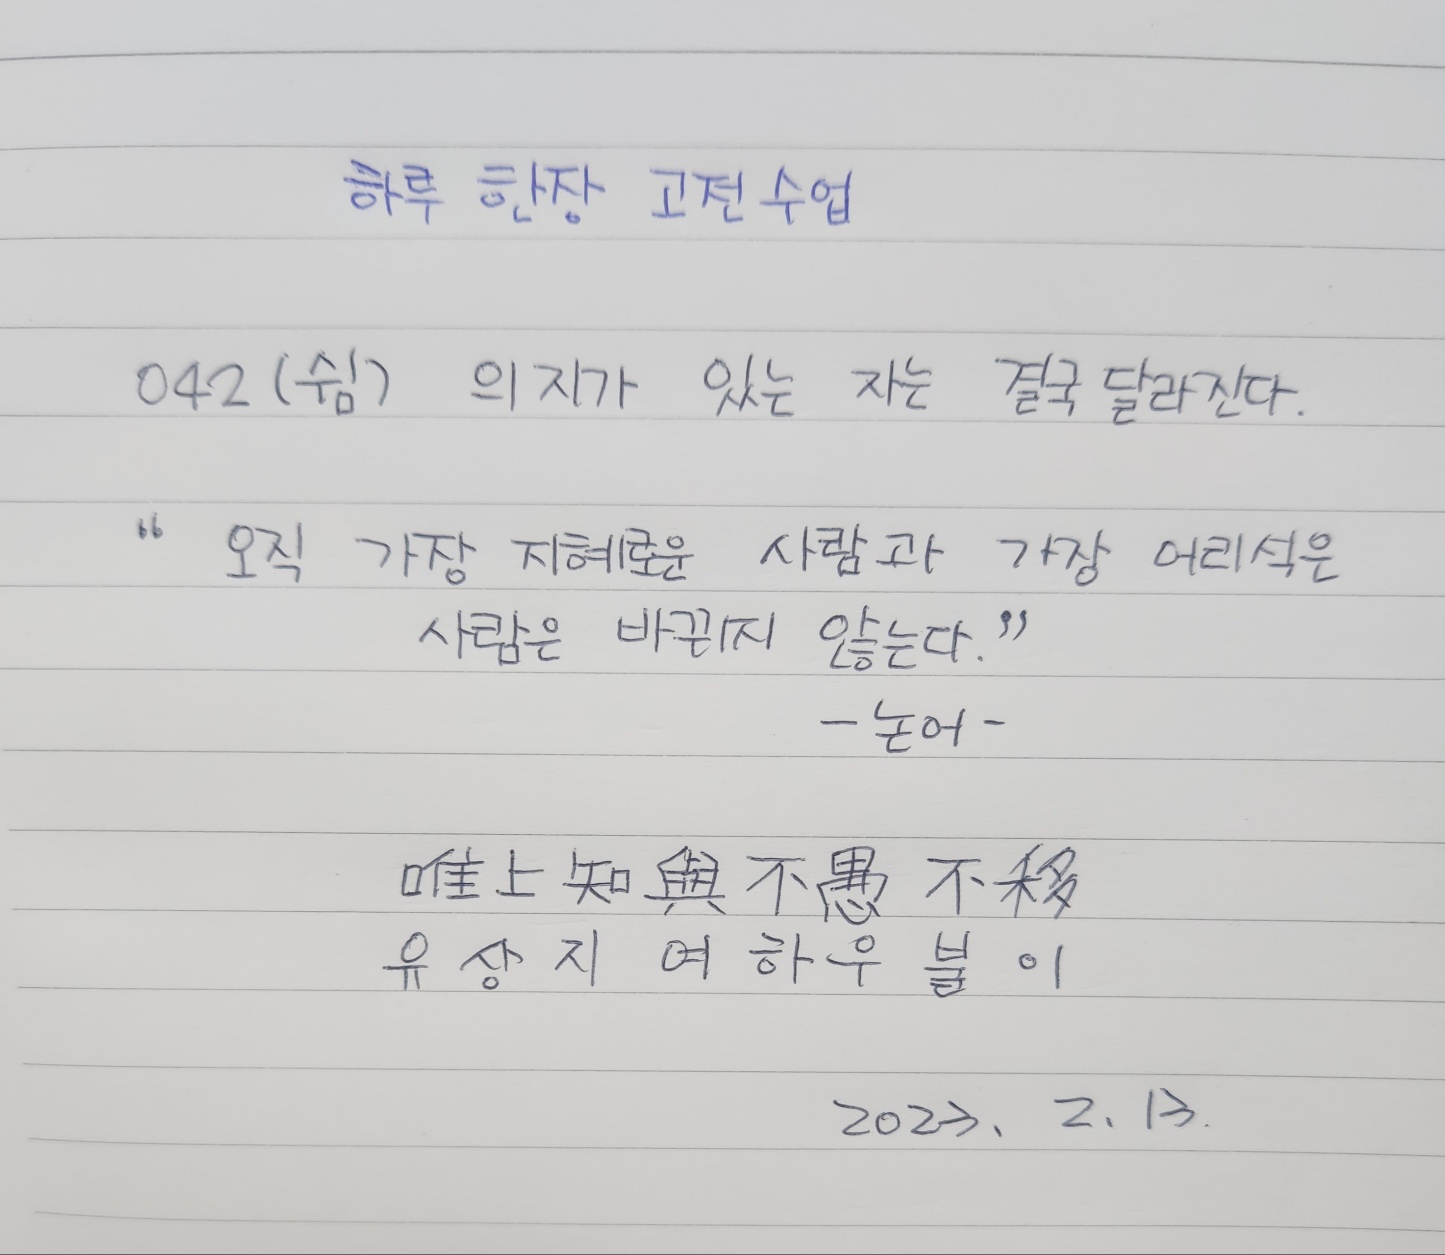 하루 한장 고전수업
042 (쉼) 의지가 있는 자는 결국 달라진다.
“ 오직 가장 지혜로운 사람과 가장 어리석은
사람은 바뀌지 않는다.”
- 논어 -
唯上知與不愚不移
유상지여하우불이
2023. 2. 13.